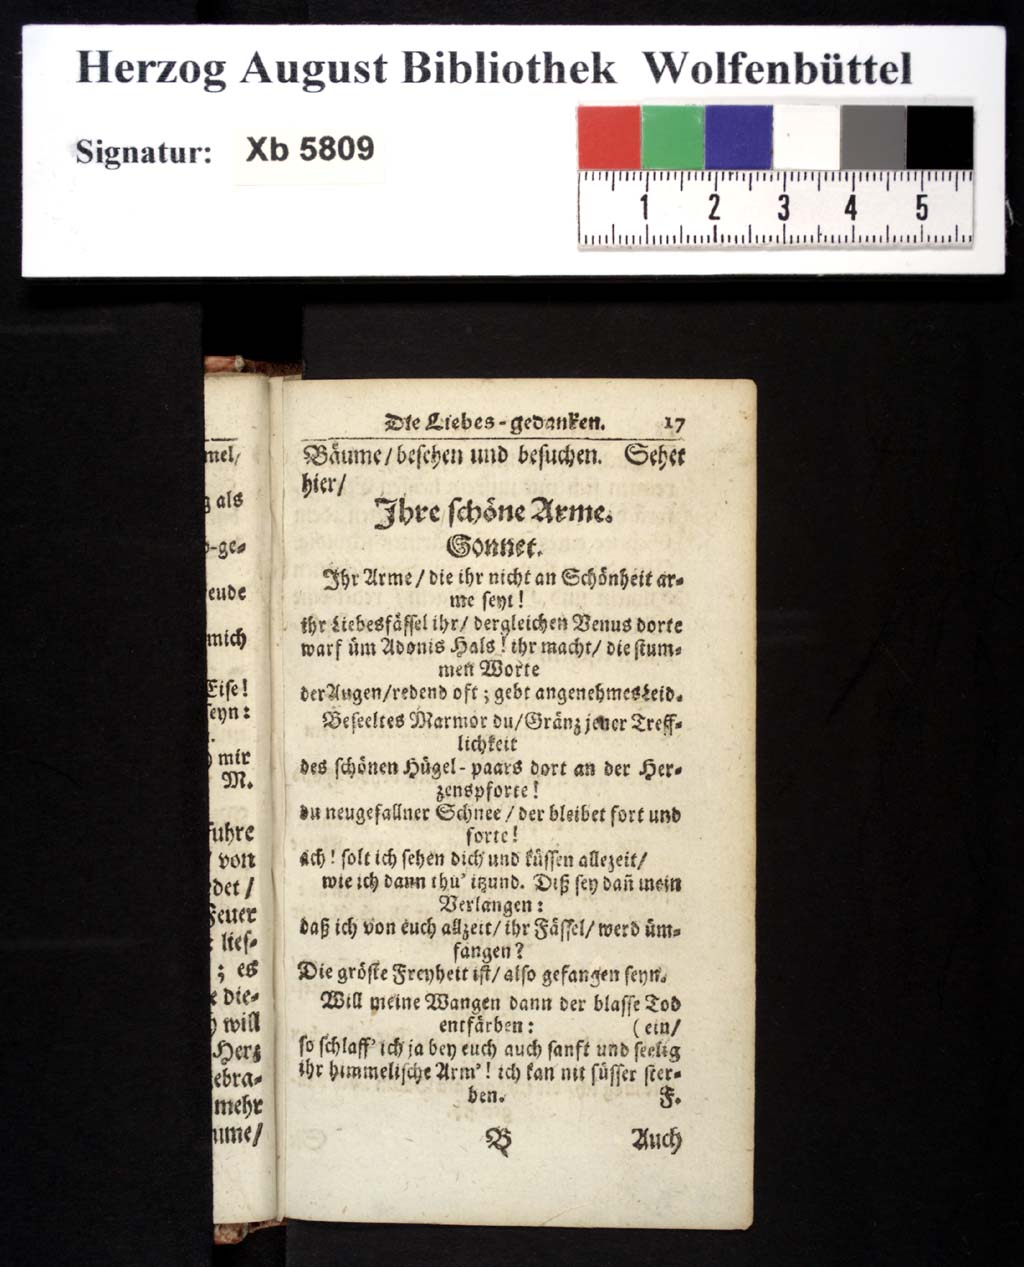 Herzog August Bibliothek Wolfenbüttel
Signatur: Xb 5809
1 2 3 4 5
mel/
als
-ge-
eude
mich
Eise!
seyn:
mir
M.
fuhre
von
det/
Feuer
lies-
; es
die-
will
Hertz
ebra-
mehr
ume/
Die Liebes-gedanken. 17
Bäume/ besehen und besuchen. Sehet
hier/
Ihre schöne Arme.
Sonnet.
Ihr Arme/ die ihr nicht an Schönheit ar-
me seyt!
ihr Liebesfässel ihr/ dergleichen Venus dorte
warf üm Adonis Hals! ihr macht/ die stum-
men Worte
der Augen/ redend oft; gebt angenehmes Leid.
Beseeltes Marmor du/ Gränz jener Treff-
lichkeit
des schönen Hügel-paars dort an der Her-
zenspforte!
du neugefallner Schnee/ der bleibet fort und
forte!
ach! solt ich sehen dich und küssen allezeit/
wie ich dann thu' itzund. Diß sey dañ mein
Verlangen:
daß ich von euch allzeit/ ihr Fässel/ werd üm-
fangen?
Die gröste Freyheit ist/ also gefangen seyn.
Will meine Wangen dann der blasse Tod
entfärben: (ein/
so schlaff' ich ja bey euch auch sanft und seelig
ihr himmelische Arm'! ich kan nit süsser ster-
ben. F.
B Auch